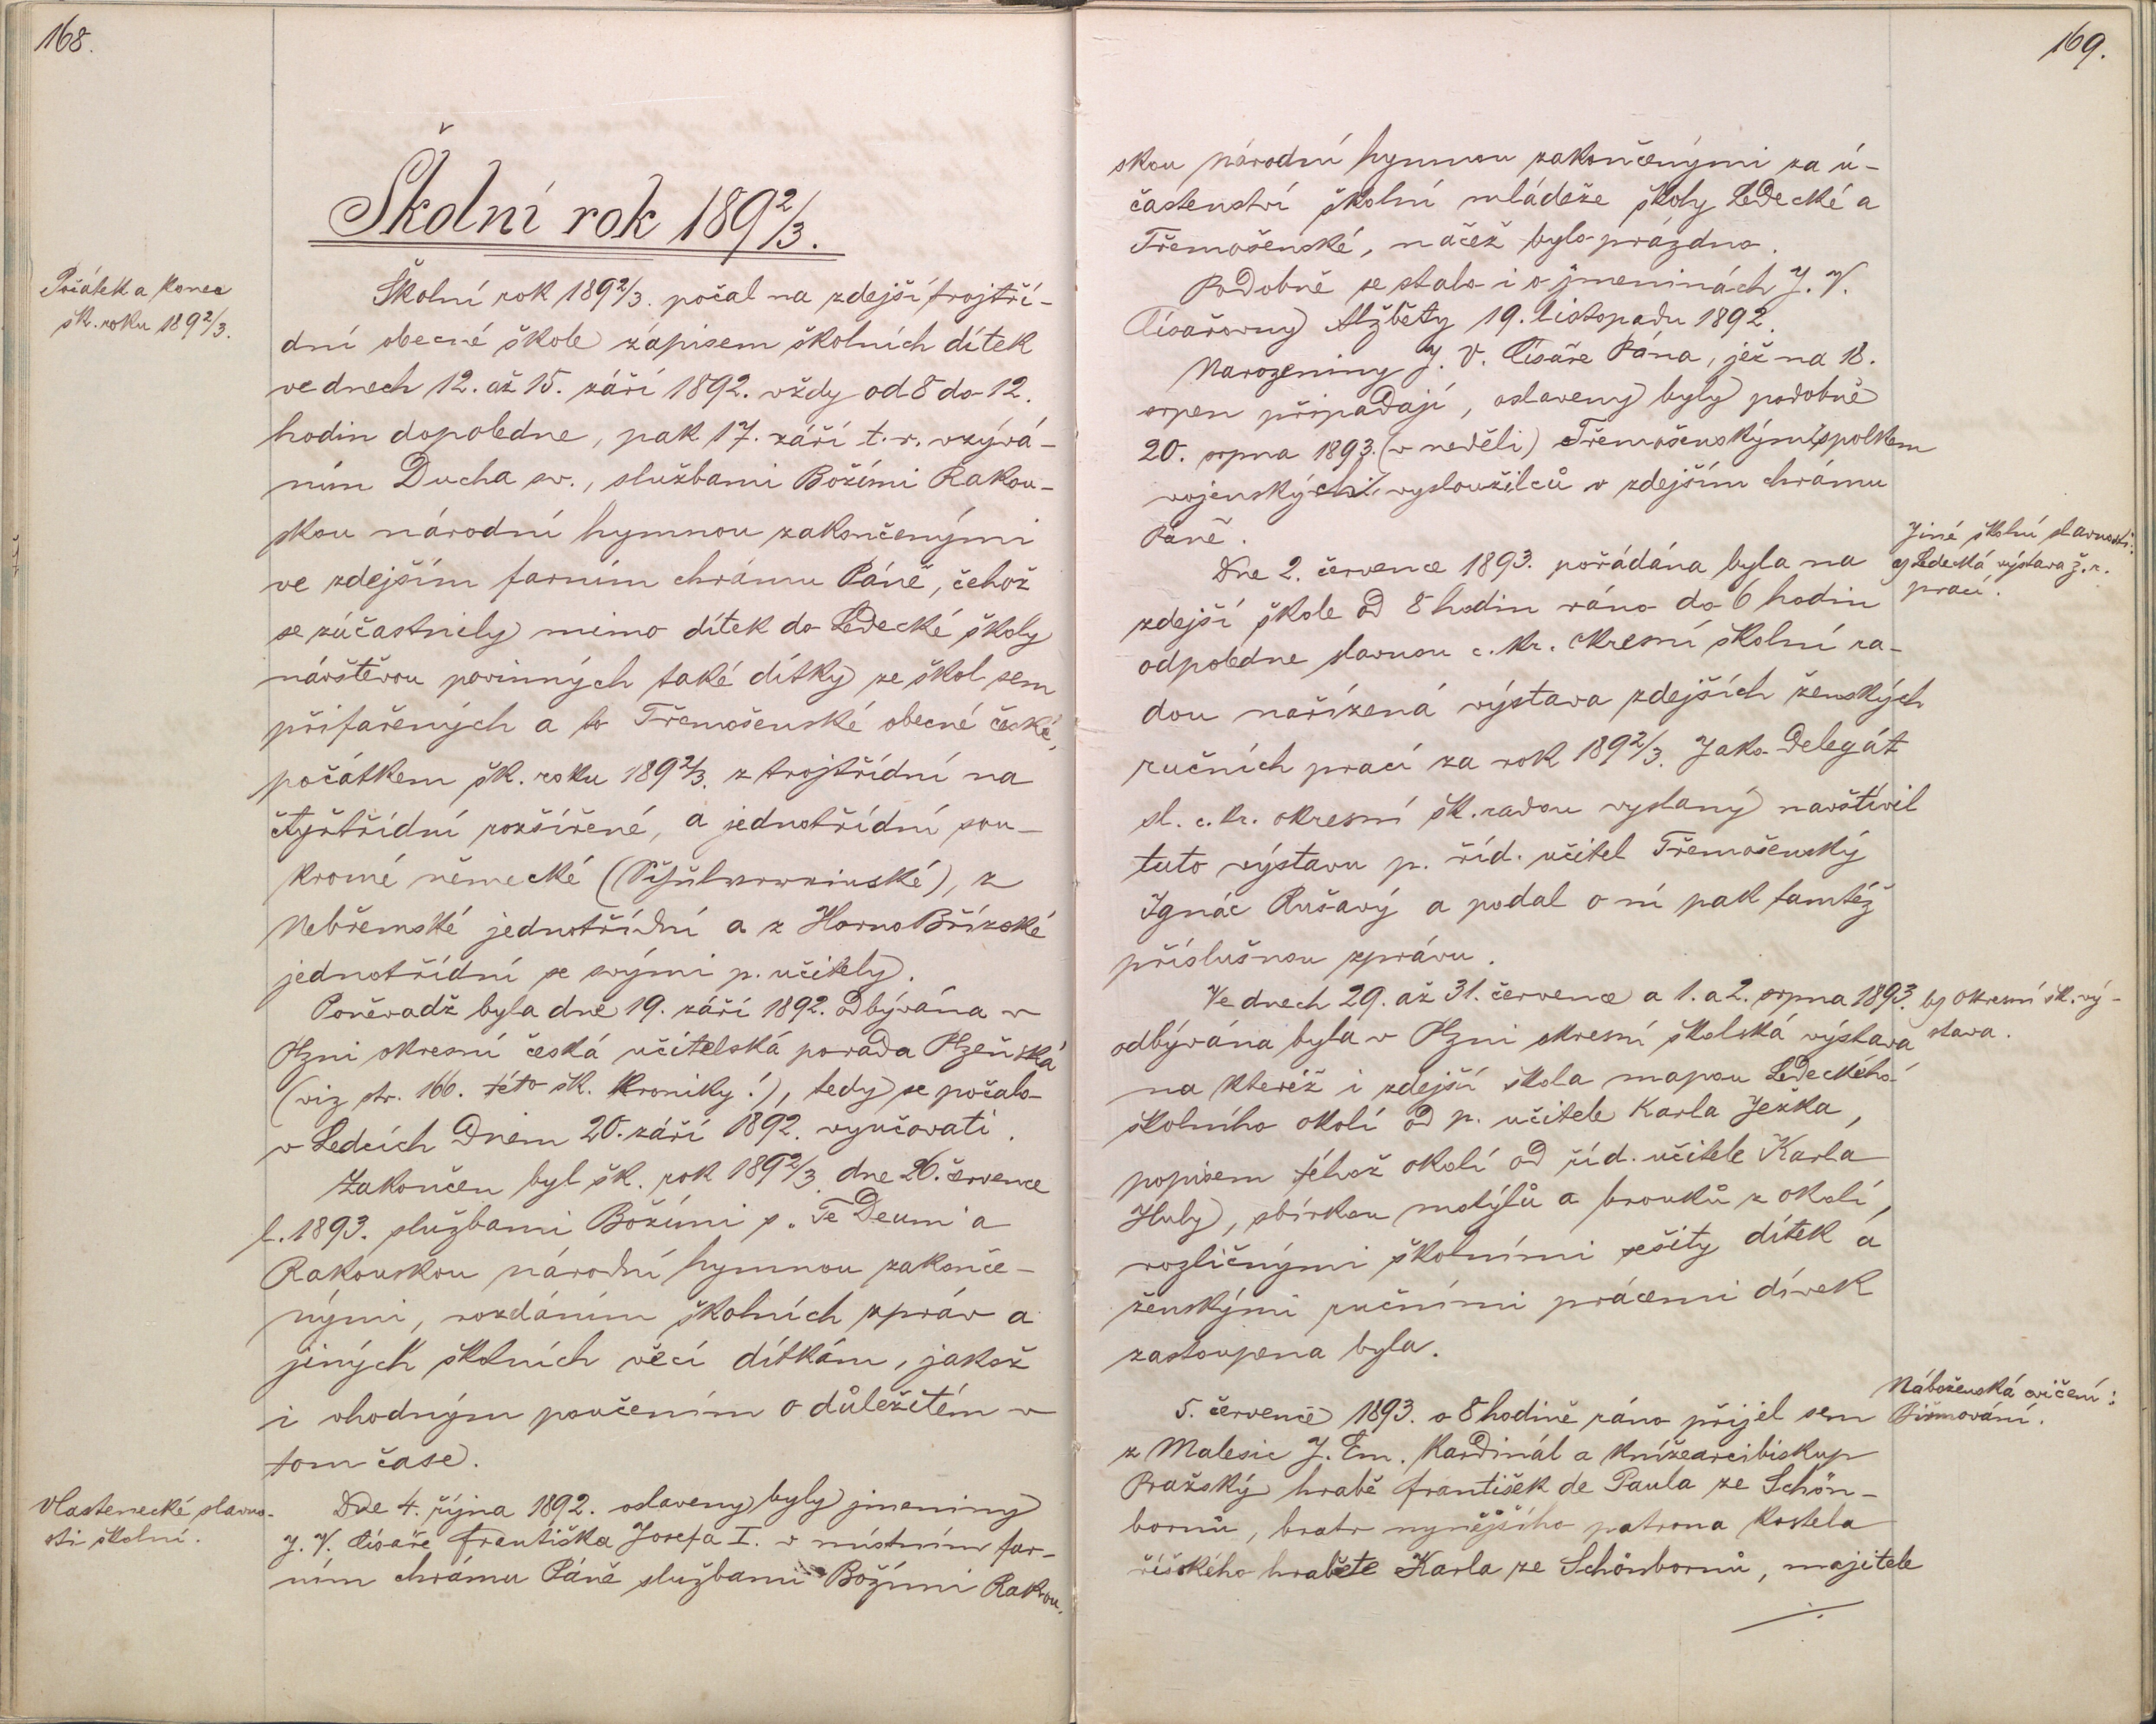 168.
Školní rok 1892/3.
Počátek a konec
šk. roku 1892/3.
Školní rok 1892/3. počal na zdejší trojtří-
dní obecné škole zápisem školních dítek
ve dnech 12. až 15. září 1892. vždy od 8 do 12.
hodin dopoledne, pak 17. září t. r. vzývá-
ním Ducha sv., službami Božími Rakou-
skou národní hymnou zakončenými
ve zdejším farním chrámu Páně, čehož
se zúčastnily mimo dítek do Ledecké školy
návštěvou povinných také dítky ze škol sem
přifařených a to Třemošenské obecné české,
počátkem šk. roku 1892/3. z trojtřídní na
čtyřtřídní rozšířené, a jednotřídní sou-
kromé německé (Schulvereinské), z
Nebřemské jednotřídní a z Horno Břízské
jednotřídní se svými p. učitely.
Poněvadž byla dne 19. září 1892. odbývána v
Plzni okresní česká učitelská porada Plzeňská
(viz str. 166. této šk. kroniky!), tedy se počalo
v Ledcích dnem 20. září 1892. vyučovati.
Zakončen byl šk. rok 1892/3. dne 26. července
l. 1893. službami Božími s „Te Deum" a
Rakouskou národní hymnou zakonče-
nými, rozdáním školních zpráv a
jiných školních věcí dítkám, jakož
i vhodným poučením o důležitém v
tom čase.
Vlastenecké slavno-
sti školní.
Dne 4. října 1892. oslaveny byly jmeniny
J. V. císaře Františka Josefa I. v místním far-
ním chrámu Páně službami Božími Rakou-
169.
skou národní hymnou zakončenými za ú-
častenství školní mládeže školy Ledecké a
Třemošenské, načež bylo prázdno.
Podobně se stalo i o jmeninách J. V.
Císařovny Alžběty 19. listopadu 1892.
Narozeniny J. V. Císaře Pána, jež na 18.
srpen připadají, oslaveny byly podobně
20. srpna 1893. (v neděli) Třemošenským spolkem
vojenských vysloužilců v zdejším chrámu
Páně.
Jiné školní slavnosti:
a) Ledecká výstava ž. r.
prací.
Dne 2. července 1893. pořádána byla na
zdejší škole od 8 hodin ráno do 6 hodin
odpoledne slavnou c. kr. okresní školní ra-
dou nařízená výstava zdejších ženských
ručních prací za rok 1892/3. Jako delegát
sl. c. kr. okresní šk. radou vyslaný navštívil
tuto výstavu p. říd. učitel Třemošenský
Ignác Rušavý a podal o ní pak tamtéž
příslušnou zprávu.
Ve dnech 29. až 31. července a 1. a 2. srpna 1893.
b) okresní šk. vý-
stava.
odbývána byla v Plzni okresní školská výstava
na kteréž i zdejší škola mapou Ledeckého
školního okolí od p. učitele Karla Ježka,
popisem téhož okolí od říd. učitele Karla
Huly, sbírkou motýlů a brouků z okolí,
rozličnými školními sešity dítek a
ženskými ručními prácemi dívek
zastoupena byla.
Náboženská cvičení:
Biřmování.
5. července 1893. o 8 hodině ráno přijel sem
z Malesic J. Em. Kardinál a knížearcibiskup
Pražský hrabě František de Paula ze Schön-
bornů, bratr nynějšího patrona kostela
říšského hraběte Karla ze Schönbornů, majitele